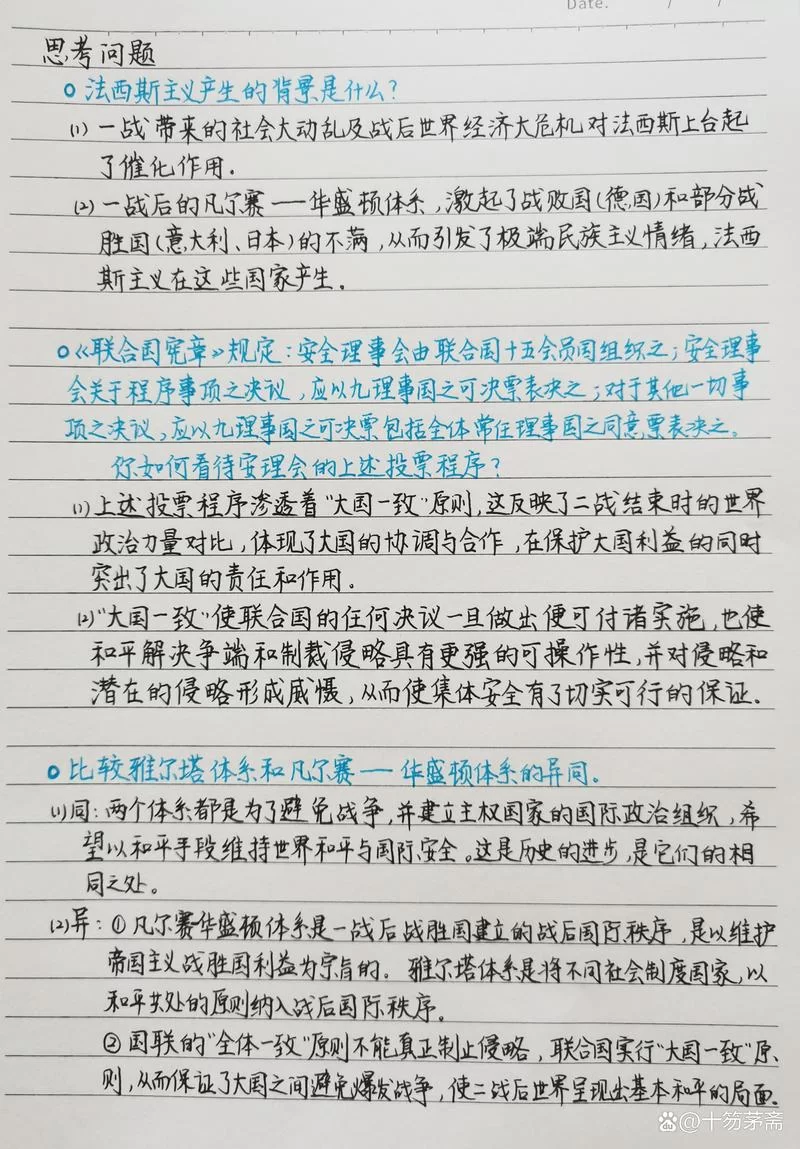 Date. / /
思考问题
法西斯主义产生的背景是什么?
(1) 一战带来的社会大动乱及战后世界经济大危机对法西斯上台起
了催化作用.
(2) 一战后的凡尔赛——华盛顿体系,激起了战败国(德国)和部分战
胜国(意大利、日本)的不满,从而引发了极端民族主义情绪,法西
斯主义在这些国家产生.
《联合国宪章》规定:安全理事会由联合国十五会员国组织之;安全理事
会关于程序事项之决议,应以九理事国之可决票表决之;对于其他一切事
项之决议,应以九理事国之可决票包括全体常任理事国之同意票表决之。
你如何看待安理会的上述投票程序?
(1) 上述投票程序渗透着"大国一致"原则,这反映了二战结束时的世界
政治力量对比,体现了大国的协调与合作,在保护大国利益的同时
突出了大国的责任和作用。
(2) "大国一致"使联合国的任何决议一旦做出便可付诸实施,也使
和平解决争端和制裁侵略具有更强的可操作性,并对侵略和
潜在的侵略形成威慑,从而使集体安全有了切实可行的保证.
比较雅尔塔体系和凡尔赛——华盛顿体系的异同.
(1) 同:两个体系都是为了避免战争,并建立主权国家的国际政治组织,希
望以和平手段维持世界和平与国际安全。这是历史的进步,是它们的相
同之处。
(2) 异:①凡尔赛华盛顿体系是一战后战胜国建立的战后国际秩序,是以维护
帝国主义战胜国利益为宗旨的.雅尔塔体系是将不同社会制度国家,以
和平共处的原则纳入战后国际秩序。
②国联的"全体一致"原则不能真正制止侵略,联合国实行"大国一致"原
则,从而保证了大国之间避免爆发战争,使二战后世界呈现出基本和平的局面.
Bai du @十笏茅斋